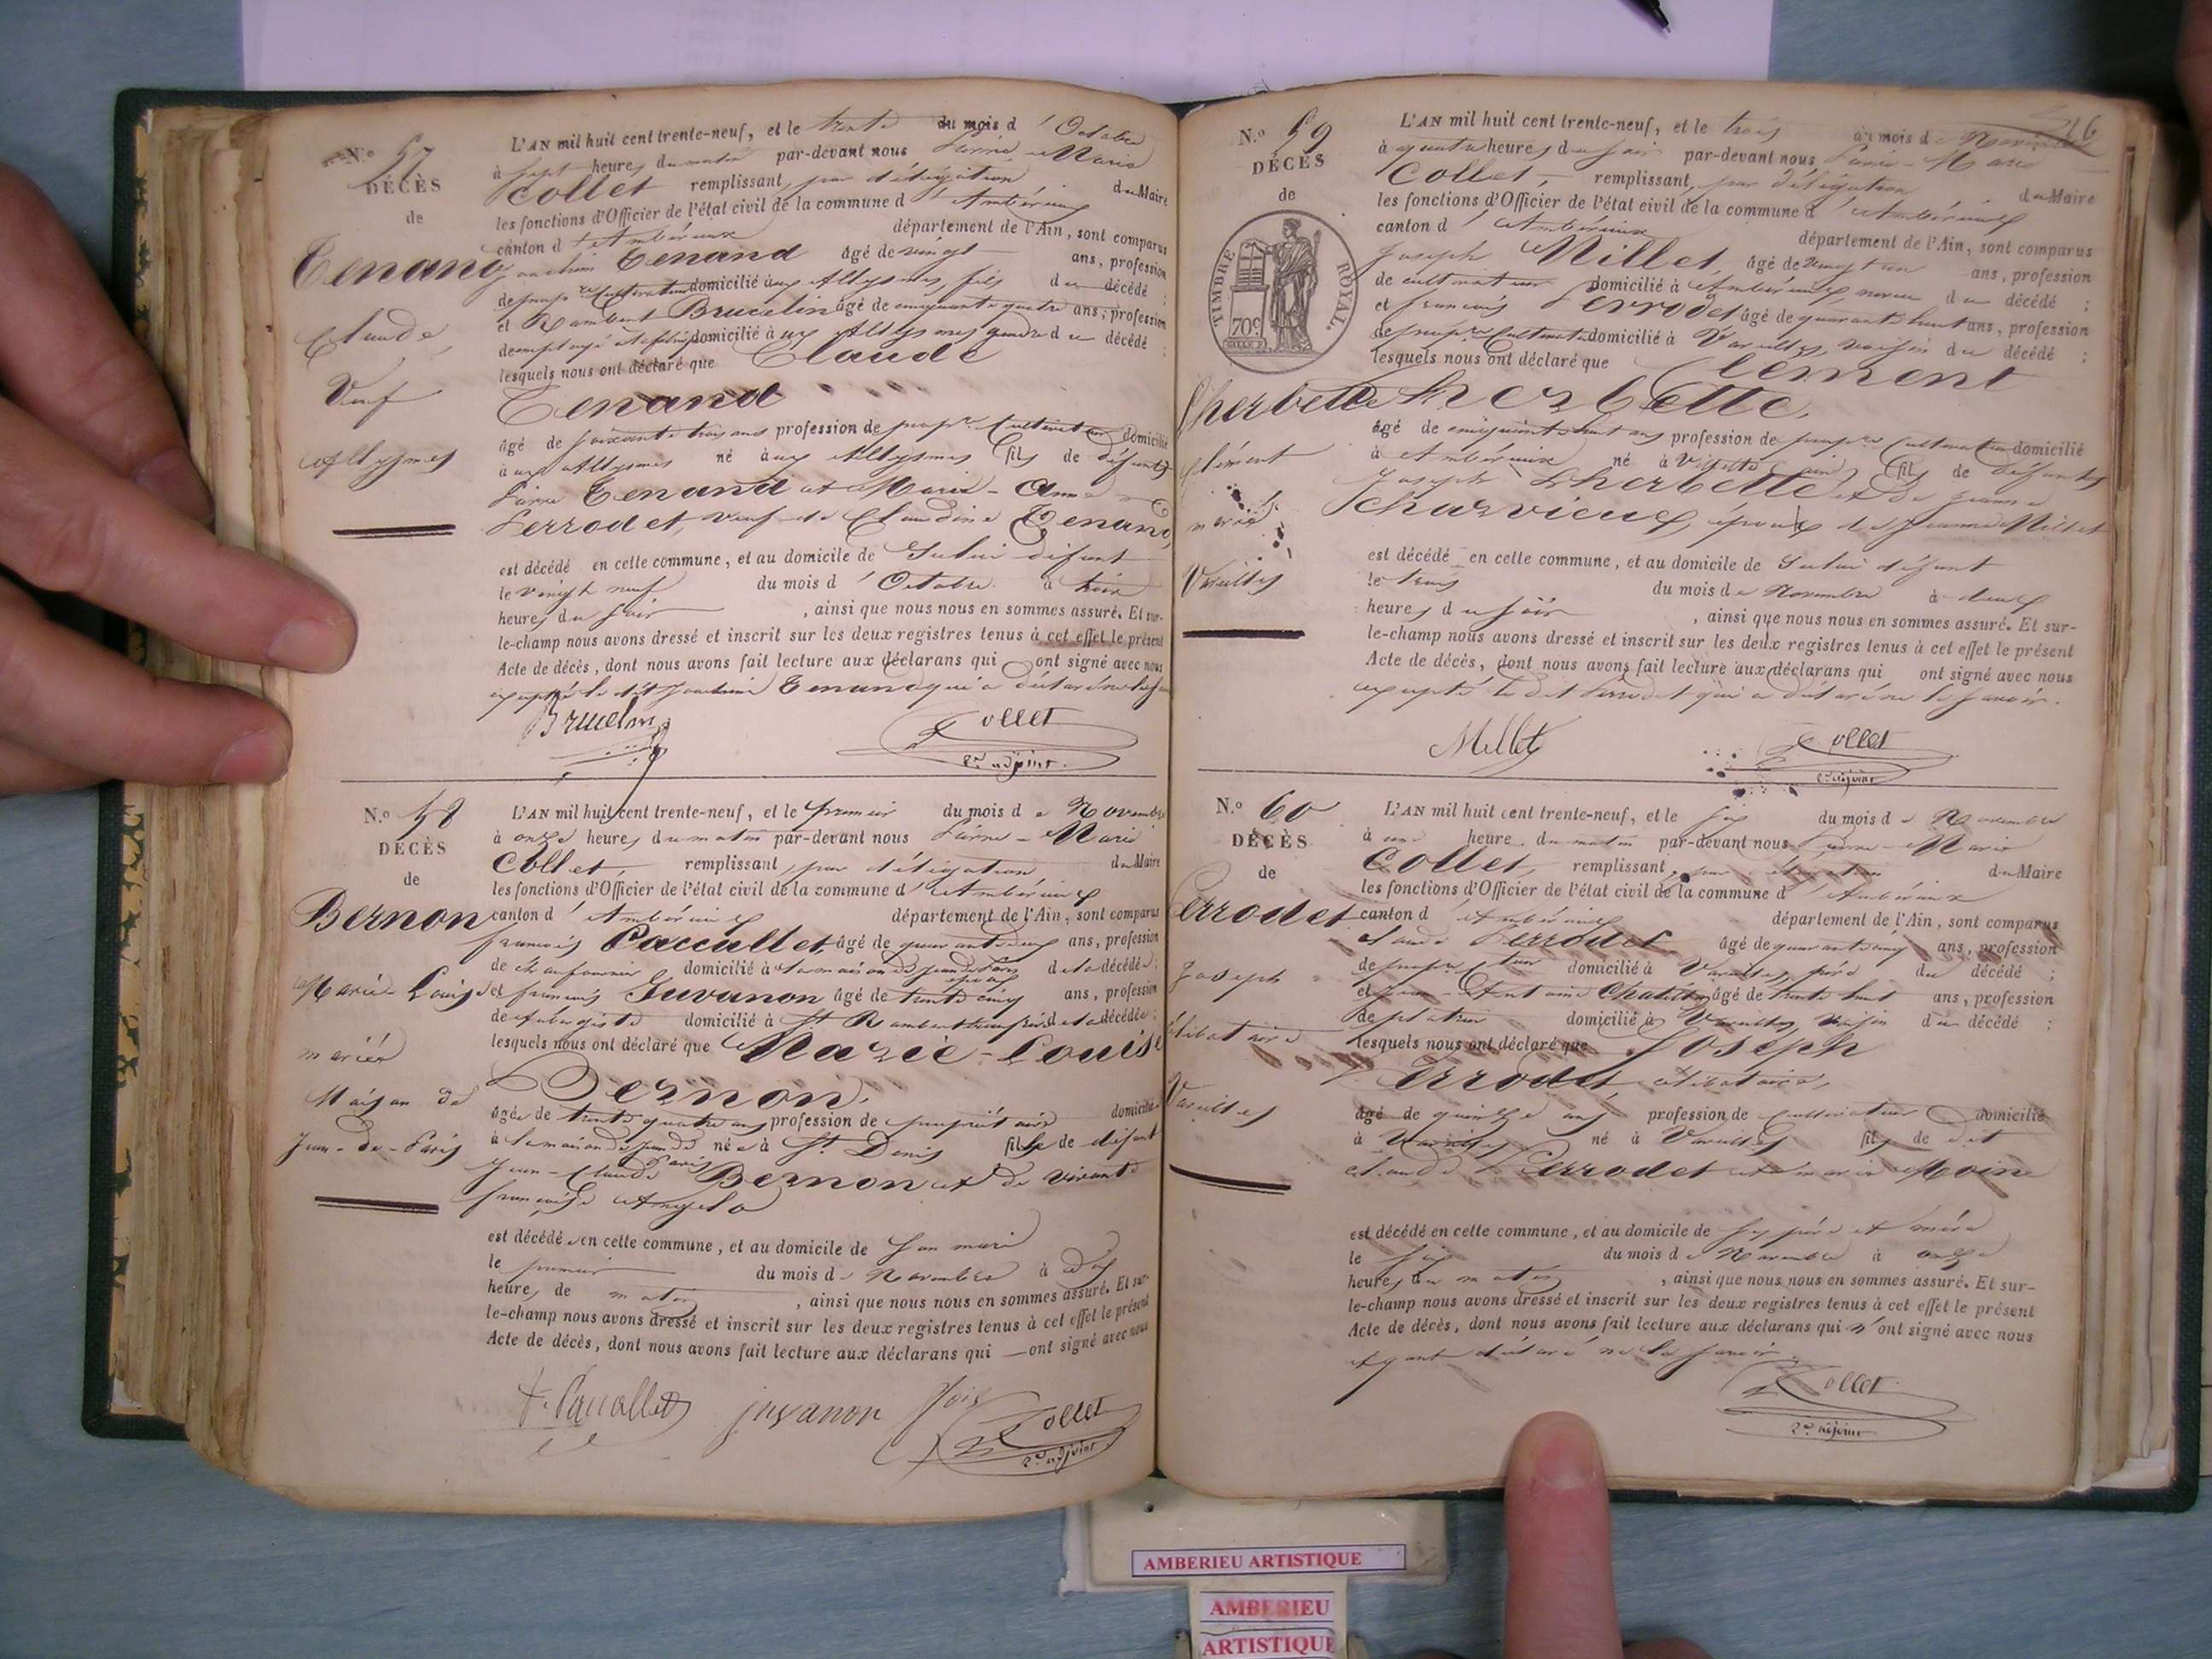 N.o 57
DÉCÈS
de
Tenand
Claude,
Veuf
Allysmes
L'AN mil huit cent trente-neuf, et le trente du mois d'Octobre
à sept heures du matin par-devant nous Pierre-Marie
Collet remplissant, par délégation du Maire
les fonctions d'Officier de l'état civil de la commune d'Ambérieux
canton d'Ambérieux département de l'Ain, sont comparus
Joachim Tenand âgé de vingt ans, profession
de prop.re Cultivateur domicilié aux Allysmes, fils du décédé ;
et Rambert Brucelin âgé de cinquante quatre ans, profession
domicilié aux Allysmes, gendre du décédé ;
lesquels nous ont déclaré que Claude
Tenand
âgé de soixante trois ans profession de prop.re Cultivateur domicilié
à aux Allysmes né à aux Allysmes fils de défunts
Pierre Tenand et Marie-Anne
Perrodet, veuf de Claudine Tenand,
est décédé en cette commune, et au domicile de Lui défunt
le vingt neuf du mois d'Octobre à trois
heures du soir, ainsi que nous nous en sommes assuré. Et sur-
le-champ nous avons dressé et inscrit sur les deux registres tenus à cet effet le présent
Acte de décès, dont nous avons fait lecture aux déclarans qui ont signé avec nous
excepté le dit Joachim Tenand qui a déclaré ne le
Brucelin
Collet
2.d adjoint.
N.o 58
DÉCÈS
de
Bernon
Marie-Louise
mariée
Maison de
Jean-de-Paris
L'AN mil huit cent trente-neuf, et le premier du mois de Novembre
à onze heures du matin par-devant nous Pierre-Marie
Collet, remplissant, par délégation du Maire
les fonctions d'Officier de l'état civil de la commune d'Ambérieux
canton d'Ambérieux département de l'Ain, sont comparus
françois Paccallet, âgé de quarante deux ans, profession
de chaufournier domicilié à la maison de Jean de Paris époux de la décédée ;
et françois Juvanon âgé de trente cinq ans, profession
de Aubergiste domicilié à St Rambert de la décédée ;
lesquels nous ont déclaré que Marie-Louise
Bernon,
âgée de trente quatre ans profession de propriétaire domiciliée
à la maison de Jean de Paris née à St. Denis fille de défunt
Jean-Claude Bernon et de vivante
françoise
est décédée en cette commune, et au domicile de son mari
le premier du mois de Novembre à dix
heures de matin, ainsi que nous nous en sommes assuré. Et sur-
le-champ nous avons dressé et inscrit sur les deux registres tenus à cet effet le présent
Acte de décès, dont nous avons fait lecture aux déclarans qui ont signé avec nous
f. Pacallet juvanon fois Collet
2.d adjoint
216
N.o 59
DÉCÈS
de
TIMBRE ROYAL.
70c
Lherbette
Clément
marié
Vareilles
L'AN mil huit cent trente-neuf, et le trois du mois de Novembre
à quatre heures du soir par-devant nous Pierre-Marie
Collet, remplissant, par délégation du Maire
les fonctions d'Officier de l'état civil de la commune d'Ambérieux
canton d'Ambérieux département de l'Ain, sont comparus
Joseph Millet, âgé de vingt un ans, profession
de cultivateur domicilié à Ambérieux, neveu du décédé ;
et françois Perrodet âgé de quarante huit ans, profession
de prop.re Cultivateur domicilié à Vareilles, voisin du décédé ;
lesquels nous ont déclaré que Clément
Lherbette,
âgé de cinquante huit ans profession de prop.re Cultivateur domicilié
à Ambérieux né à Villette (ain) fils de défunts
Joseph Lherbette et de Jeanne
Charvieux, époux de Jeanne Millet
est décédé en cette commune, et au domicile de Lui défunt
le trois du mois de Novembre à deux
heures du soir, ainsi que nous nous en sommes assuré. Et sur-
le-champ nous avons dressé et inscrit sur les deux registres tenus à cet effet le présent
Acte de décès, dont nous avons fait lecture aux déclarans qui ont signé avec nous
excepté le dit Perrodet qui a déclaré ne le savoir.
Millet
Collet
2.d adjoint
N.o 60
DÉCÈS
de
Perrodet
Joseph
célibataire
Vareilles
L'AN mil huit cent trente-neuf, et le six du mois de Novembre
à une heure du matin par-devant nous Pierre-Marie
Collet, remplissant, par délégation du Maire
les fonctions d'Officier de l'état civil de la commune d'Ambérieux
canton d'Ambérieux département de l'Ain, sont comparus
Claude Perrodet âgé de quarante cinq ans, profession
de domicilié à Vareilles, père du décédé ;
et Jean-Antoine âgé de trente huit ans, profession
de platrier domicilié à Vareilles, voisin du décédé ;
lesquels nous ont déclaré que Joseph
Perrodet, célibataire,
âgé de quinze ans profession de cultivateur domicilié
à Vareilles né à Vareilles fils de dit
Claude Perrodet et marie Moine
est décédé en cette commune, et au domicile de ses père et mère
le six du mois de Novembre à onze
heures du matin, ainsi que nous nous en sommes assuré. Et sur-
le-champ nous avons dressé et inscrit sur les deux registres tenus à cet effet le présent
Acte de décès, dont nous avons fait lecture aux déclarans qui n'ont signé avec nous
ayant déclaré ne le savoir.
Collet
2.d adjoint
AMBERIEU ARTISTIQUE
AMBERIEU
ARTISTIQUE